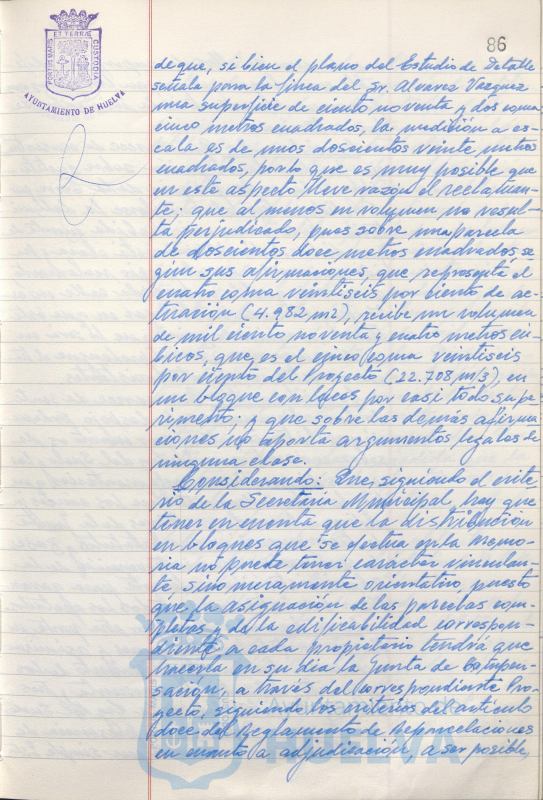 86
PORTUS MARIS ET TERRAE CUSTODIA
AYUNTAMIENTO DE HUELVA
de que, si bien el plano del Estudio de Detalle
señala para la finca del Sr. Alvarez Vazquez
una superficie de ciento noventa y dos coma
cinco metros cuadrados, la medición a es-
cala es de unos doscientos veinte metros
cuadrados, por lo que es muy posible que
en este aspecto lleve razón el reclaman-
te; que al menos en volumen no resul-
ta perjudicado, pues sobre una parcela
de doscientos doce metros cuadrados se-
gún sus afirmaciones, que representa el
cuatro coma veintiseis por ciento de ac-
tuación (4.982 m2), recibe un volumen
de mil ciento noventa y cuatro metros cú-
bicos, que es el cinco coma veintiseis
por ciento del Proyecto (22.708 m3), en
un bloque con luces por casi todo su pe-
rimento; y que sobre las demás afirma-
ciones no aporta argumentos legales de
ninguna clase.
Considerando: Que, siguiendo el crite-
rio de la Secretaría Municipal, hay que
tener en cuenta que la distribución
en bloques que se efectua en la Memo-
ria no puede tener carácter vinculan-
te, sino meramente orientativo, puesto
que la asignación de las parcelas com-
pletas y de la edificabilidad correspon-
diente a cada propietario tendrá que
hacerla en su día la Junta de Compen-
sación, a través del correspondiente Pro-
yecto, siguiendo los criterios del artículo
doce del Reglamento de Reparcelaciones
en cuanto a adjudicación, a ser posible,
HUELVA